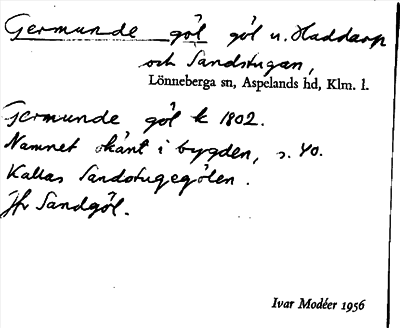 Germunde göl göl n. Haddarp
och Sandstugan,
Lönneberga sn, Aspelands hd, Klm. l.
Germunde göl k 1802.
Namnet okänt i bygden, s. 40.
Kallas Sandstugegölen.
Jfr Sandgöl.
Ivar Modéer 1956